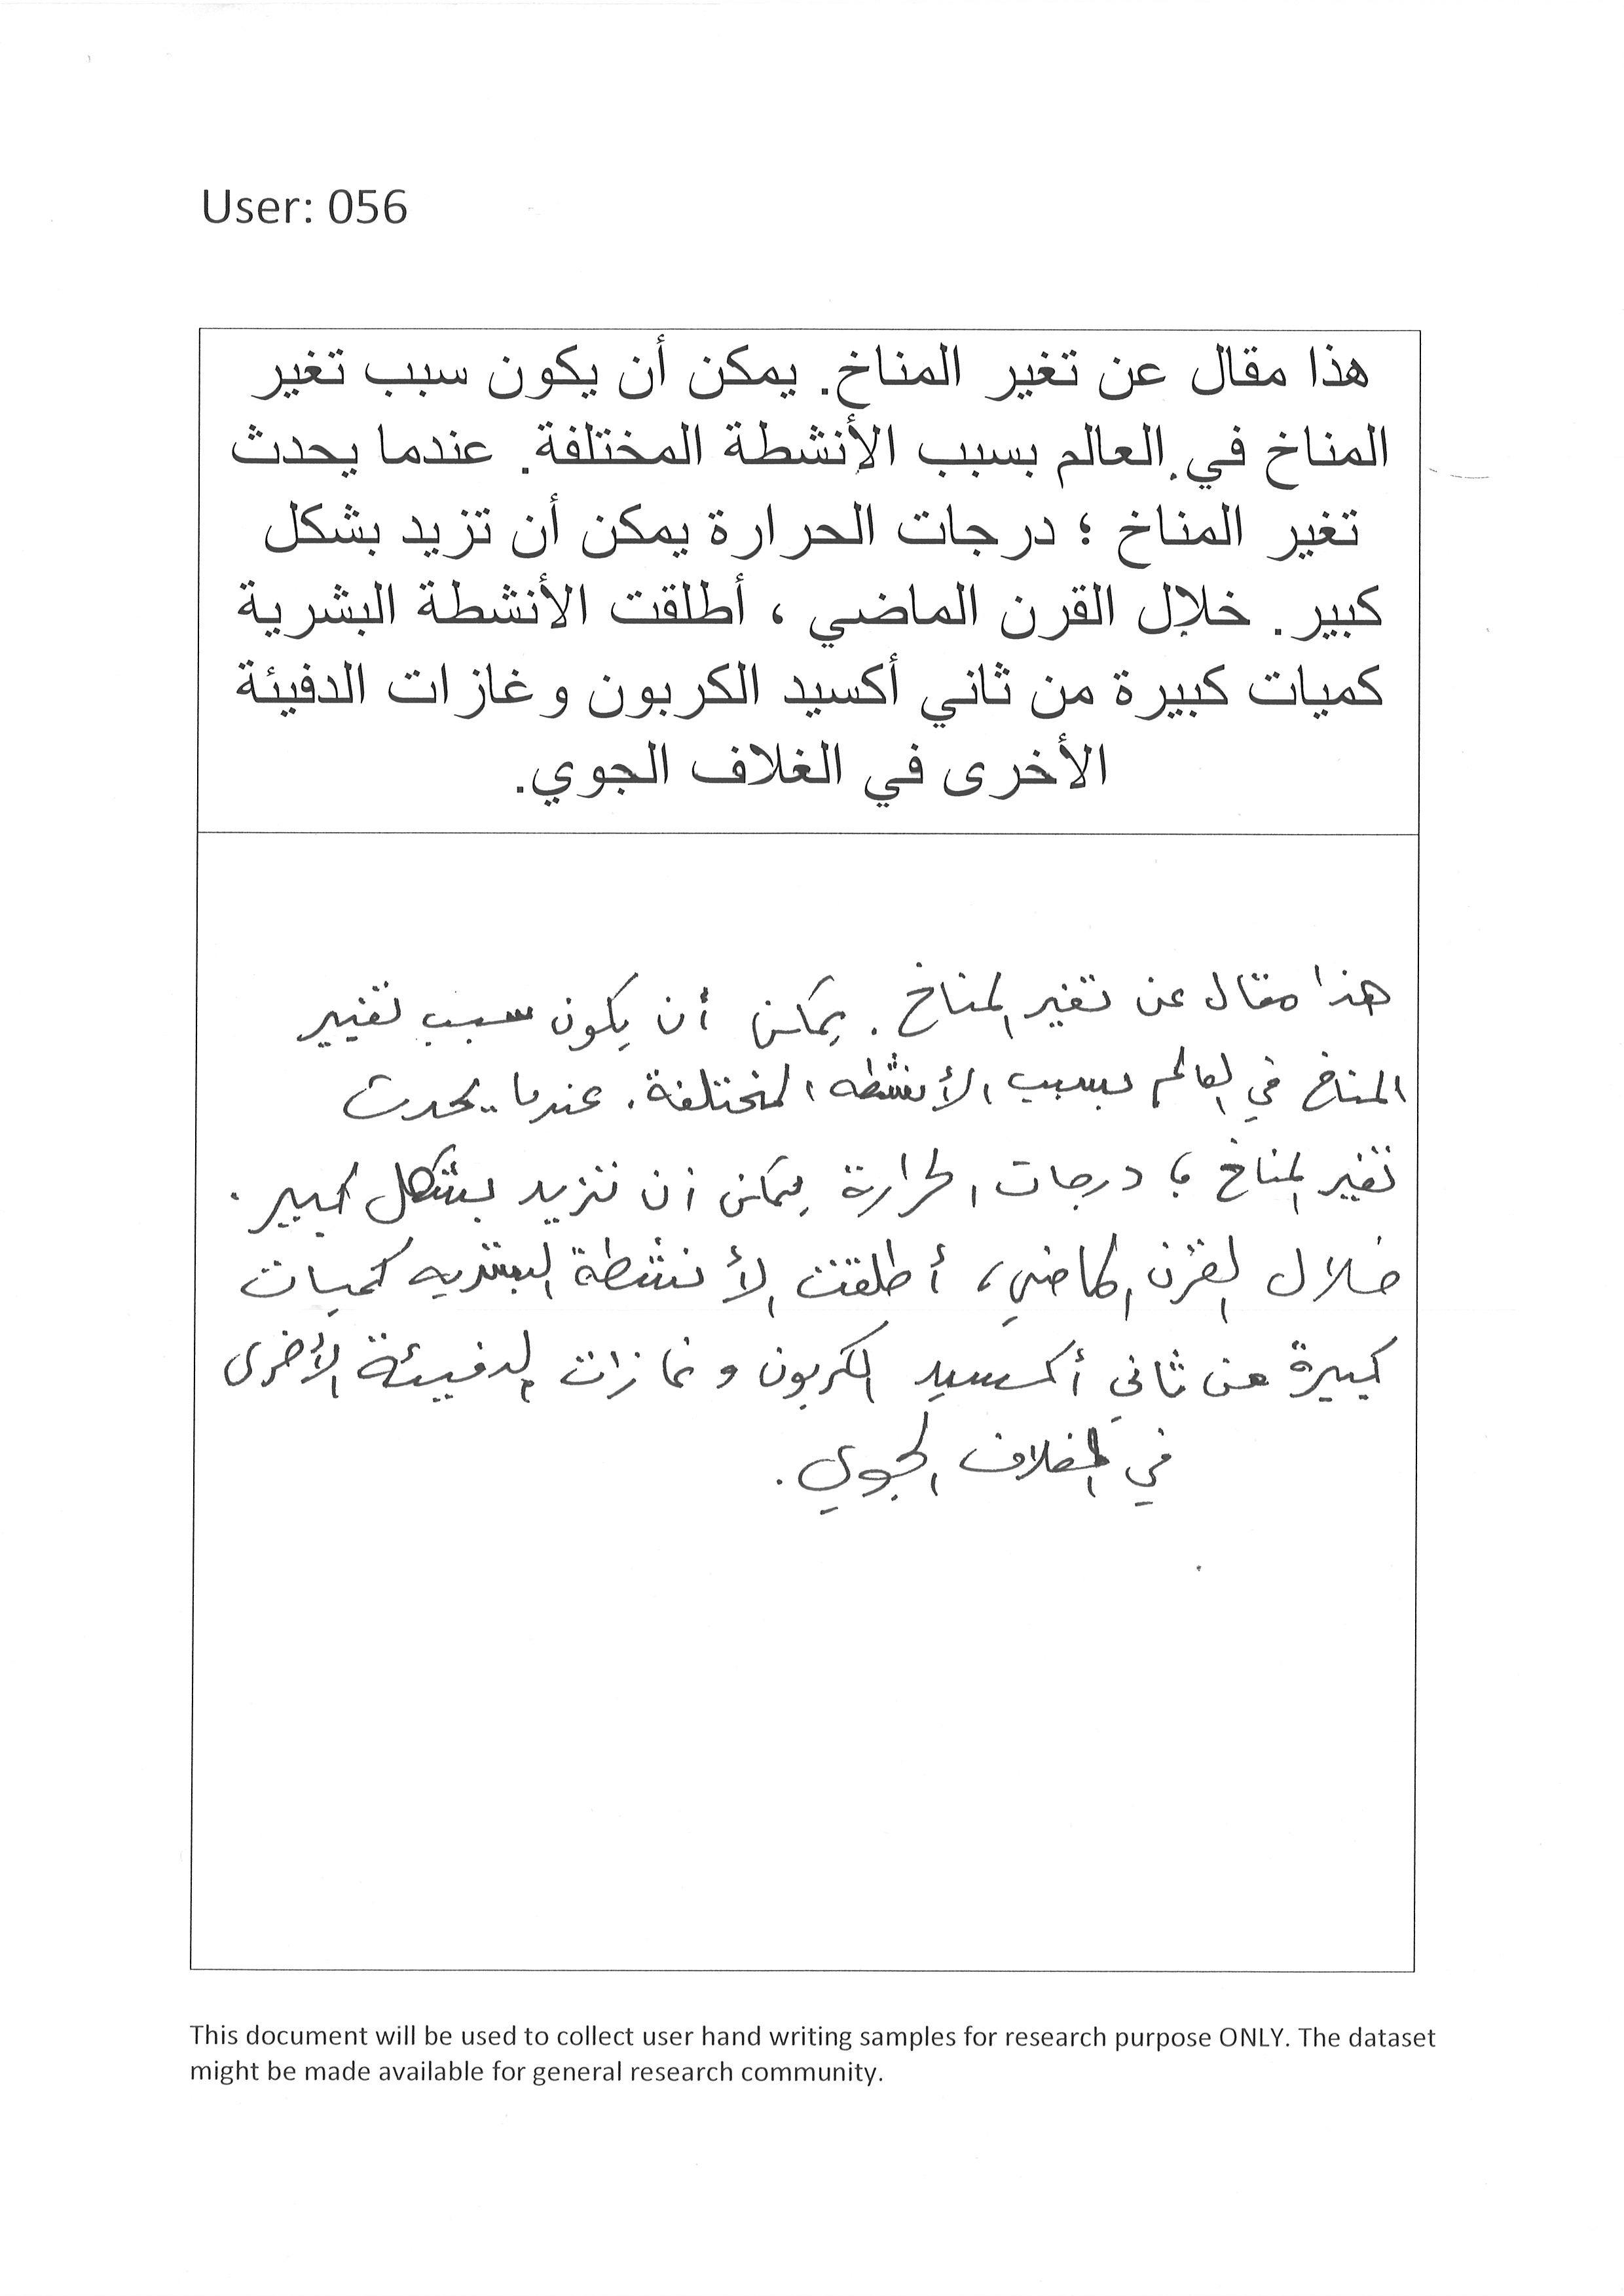 User: 056
هذا مقال عن تغير المناخ. يمكن أن يكون سبب تغير
المناخ في العالم بسبب الأنشطة المختلفة. عندما يحدث
تغير المناخ ؛ درجات الحرارة يمكن أن تزيد بشكل
كبير. خلال القرن الماضي ، أطلقت الأنشطة البشرية
كميات كبيرة من ثاني أكسيد الكربون وغازات الدفيئة
الأخرى في الغلاف الجوي.
هذا مقال عن تغير المناخ. يمكن أن يكون سبب تغيير
المناخ في العالم بسبب الأنشطه المختلفة. عندما يحدث
تغير المناخ ؛ درجات الحرارة يمكن ان تزيد بشكل كبير.
خلال القرن الماضي، أطلقت الأنشطة البشريه كميات
كبيرة من ثاني أكسيد الكربون و غازات الدفيئة الأخرى
في الغلاف الجوي.
This document will be used to collect user hand writing samples for research purpose ONLY. The dataset
might be made available for general research community.